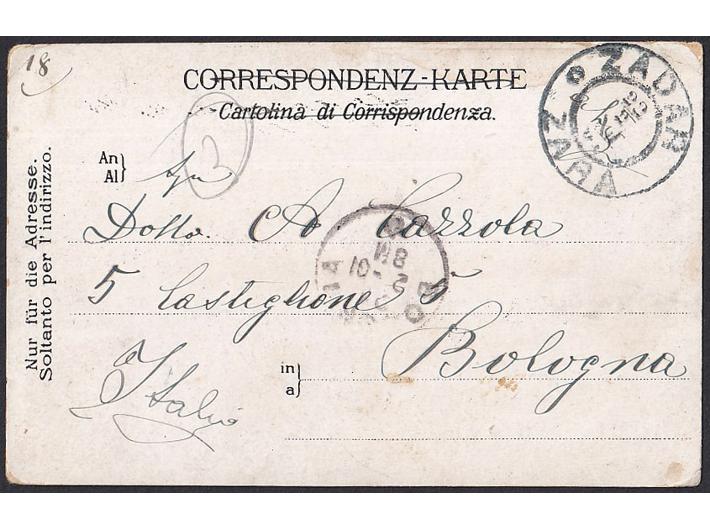 18
CORRESPONDENZ-KARTE
Cartolina di Corrispondenza.
ZADAR
ZARA
Nur für die Adresse.
Soltanto per l'indirizzo.
An
Al
Dotto. A. Cazzola
5 Castiglione 5
Bologna
in
a
Italia